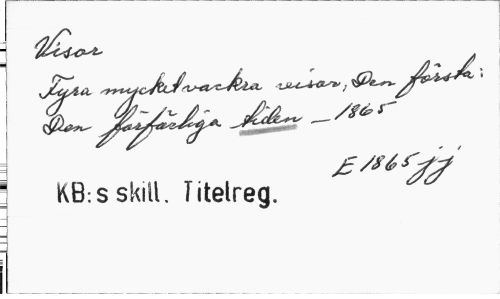 Visor
Fyra mycket vackra visor, Den första:
Den förfärliga tiden – 1865
E 1865 jj
KB:s skill. Titelreg.